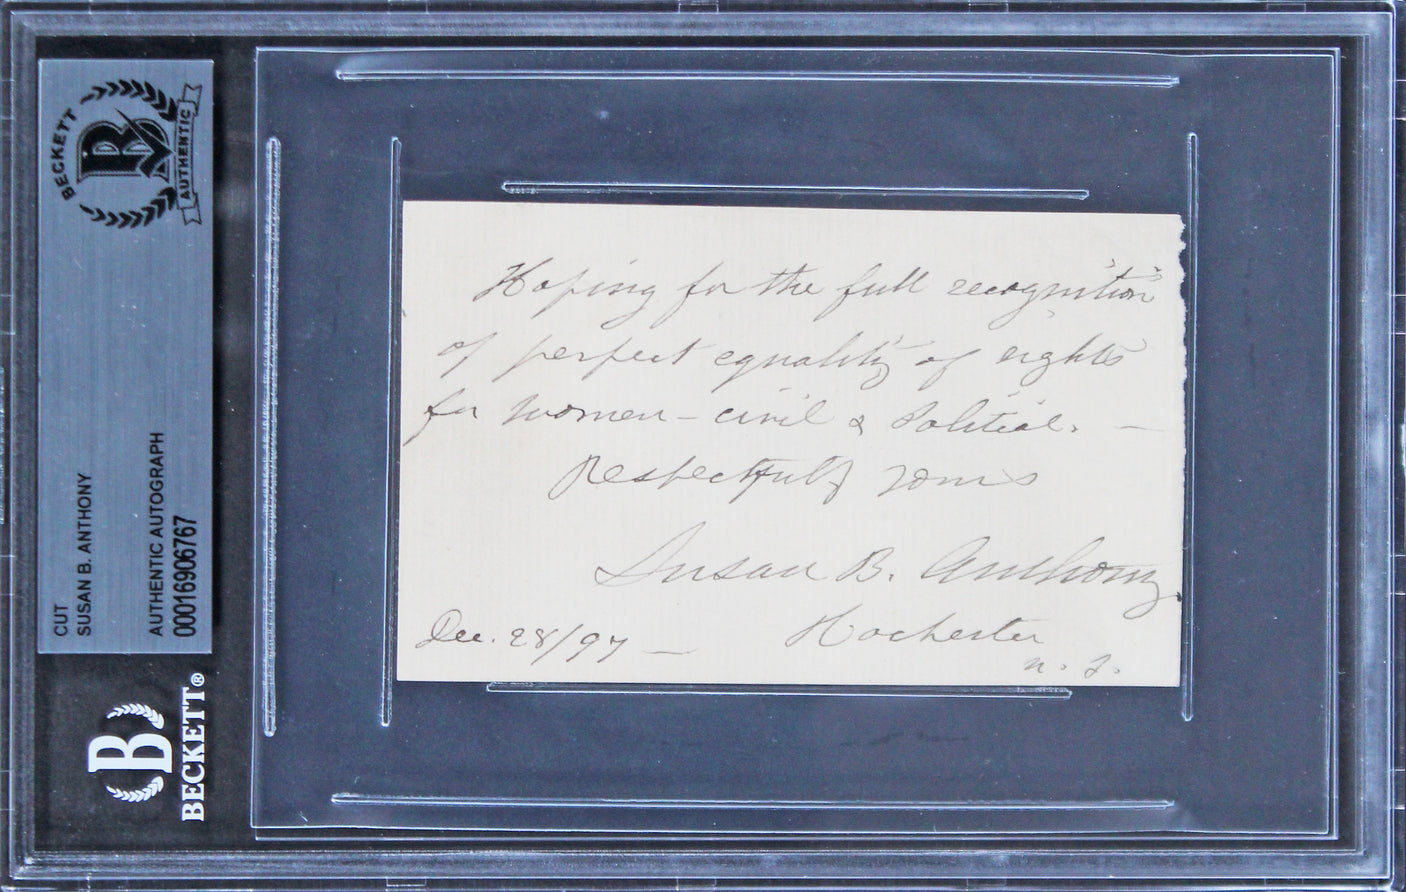 BECKETT
B
AUTHENTIC
CUT
SUSAN B. ANTHONY
AUTHENTIC AUTOGRAPH
00016906767
B
BECKETT®
Hoping for the full recognition
of perfect equality of rights
for women – civil & Political. –
Respectfully yours
Susan B. Anthony
Rochester
Dec. 28/97 –
N. Y.